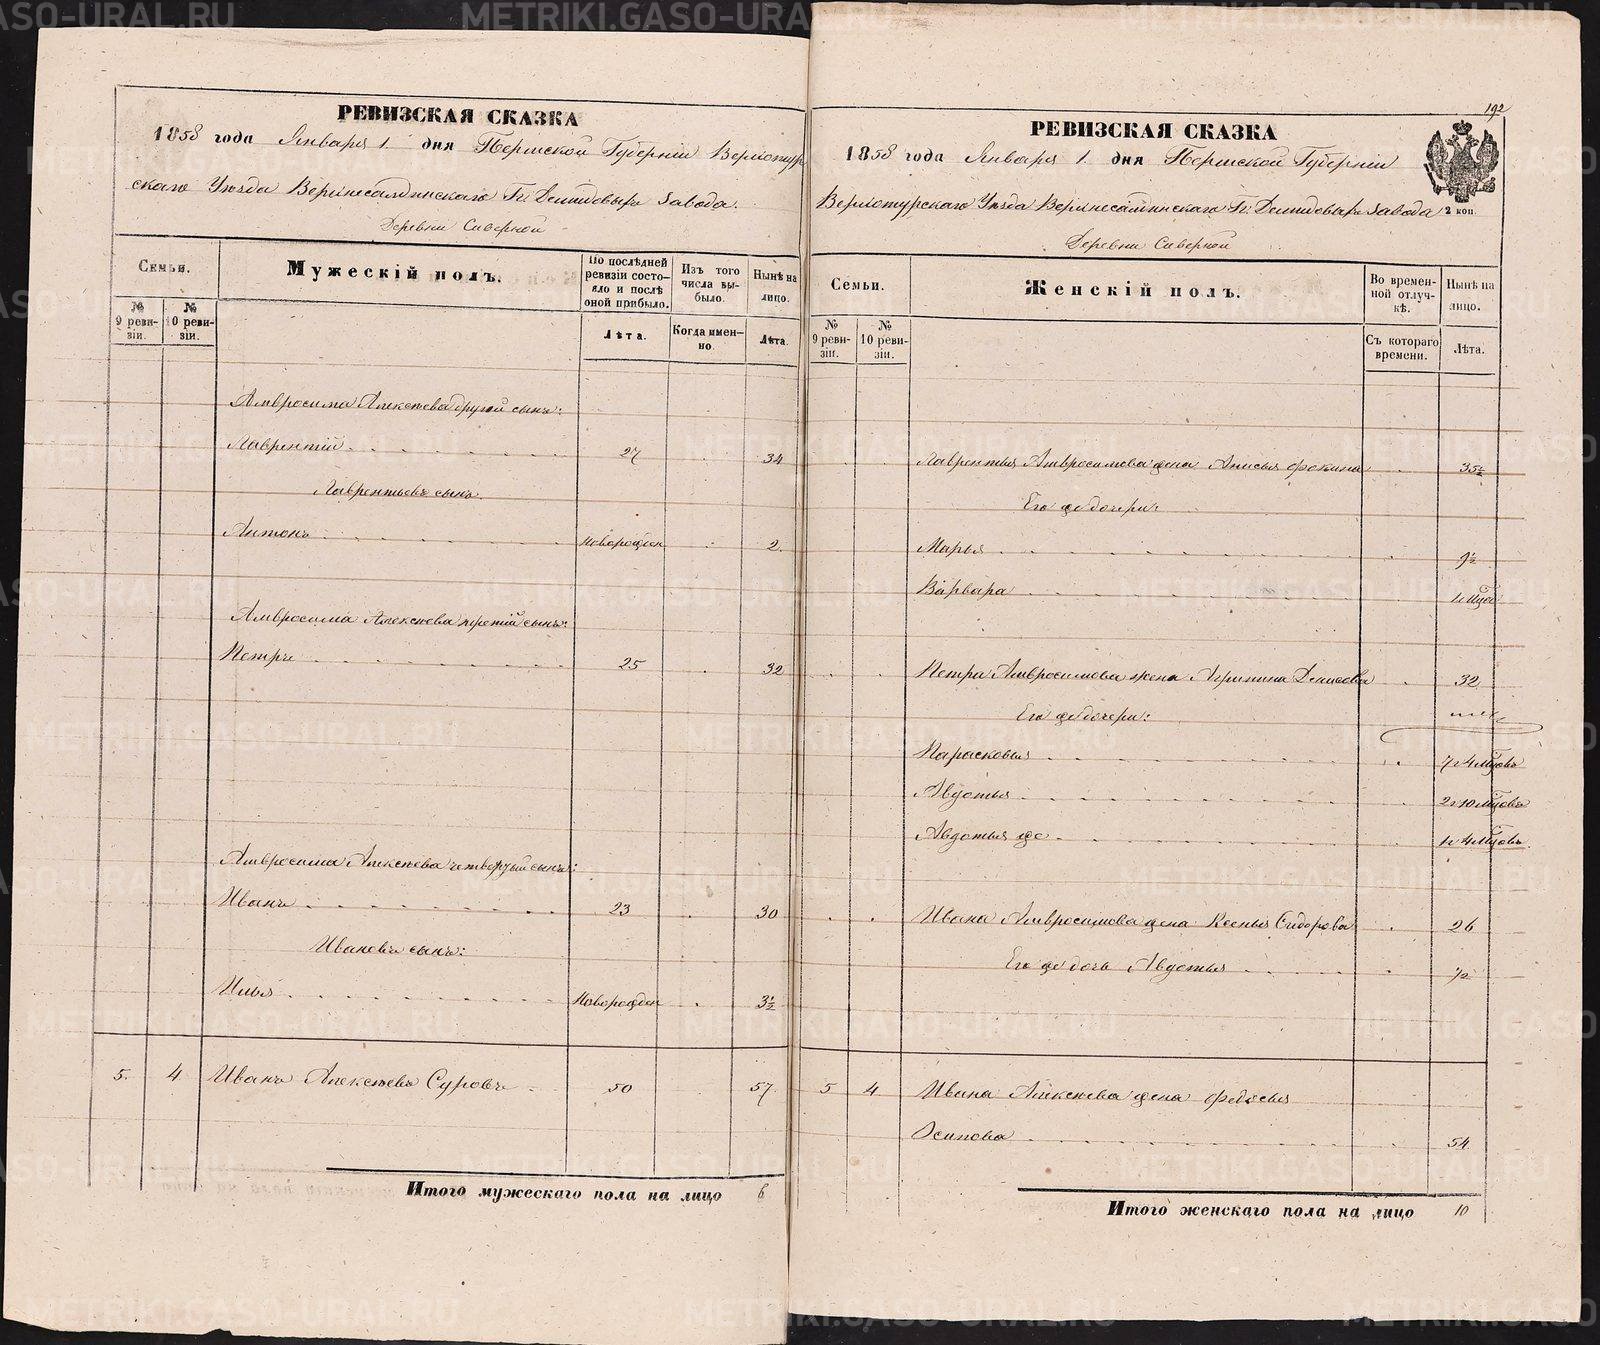 РЕВИЗСКАЯ СКАЗКА
1858 года Января 1 дня Пермской Губерніи Верхотур
скаго Уѣзда Верхнесалдинскаго Гг. Демидовыхъ завода.
Деревни Сѣверной
Семьи.
Мужескій полъ.
По послѣдней ревизіи состояло и послѣ оной прибыло.
Изъ того числа выбыло.
Нынѣ на лицо.
№ 9 ревизіи.
№ 10 ревизіи.
Лѣта.
Когда именно.
Лѣта.
Амвросима Алексѣева другой сынъ:
Лаврентій 27 34
Лаврентьевъ сынъ
Антонъ новорожден 2.
Амвросима Алексѣева третій сынъ:
Петръ 25 32
Амвросима Алексѣева четвертый сынъ:
Иванъ 23 30
Ивановъ сынъ:
Илья Новорожден 3½
5. 4 Иванъ Алексѣевъ Суровъ 50 57
Итого мужескаго пола на лицо 6
192
РЕВИЗСКАЯ СКАЗКА
1858 года Января 1 дня Пермской Губерніи
Верхотурскаго Уѣзда Верхнесалдинскаго Гг. Демидовыхъ завода
2 коп.
Деревни Сѣверной
Семьи.
Женскій полъ.
Во временной отлучкѣ.
Нынѣ на лицо.
№ 9 ревизіи.
№ 10 ревизіи.
Съ котораго времени.
Лѣта.
Лаврентья Амвросимова жена Анисья Фокина 35½
Его же дочери:
Марья 9½
Варвара
Петра Амвросимова жена Агрипина Денисова 32
Его же дочери:
Парасковья 7 г 4 мѣсцовъ
Авдотья 2 г 10 мѣсцовъ
Авдотья же 1 г 4 мѣсцовъ
Ивана Амвросимова жена Ксенья Сидорова 26
Его же дочь Авдотья ½
5 4 Ивана Алексѣева жена Федосья
Осипова 54
Итого женскаго пола на лицо 10
METRIKI.GASO-URAL.RU